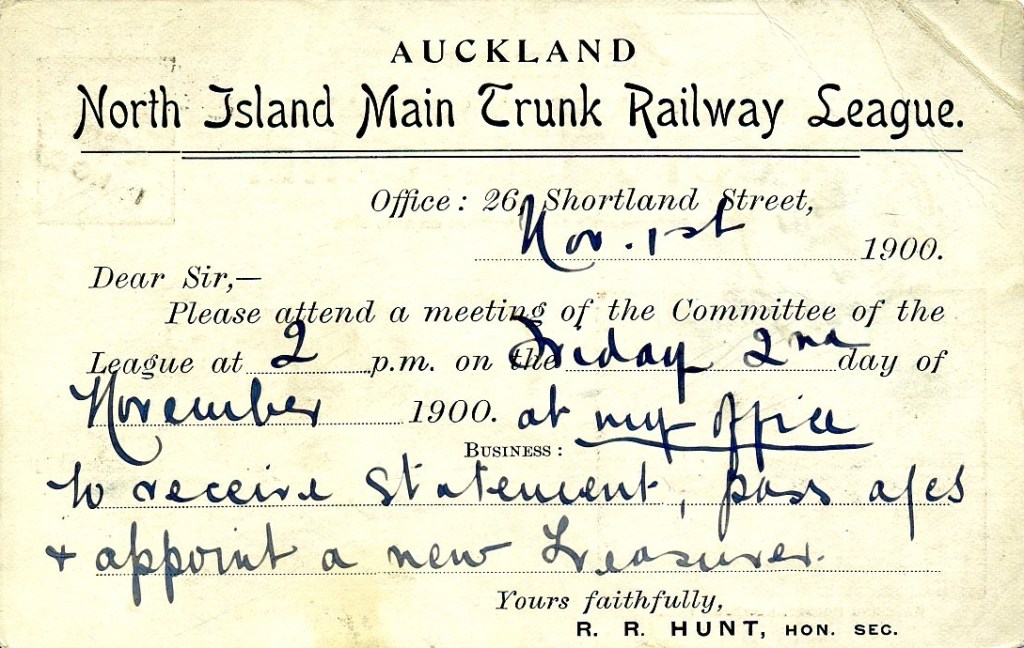 AUCKLAND
North Island Main Trunk Railway League.
Office: 26, Shortland Street,
Nov. 1st 1900.
Dear Sir,—
Please attend a meeting of the Committee of the
League at 2 p.m. on the Friday 2nd day of
November 1900. at my office
BUSINESS:
to receive Statement, pass a/cs
+ appoint a new Treasurer.
Yours faithfully,
R. R. HUNT, HON. SEC.